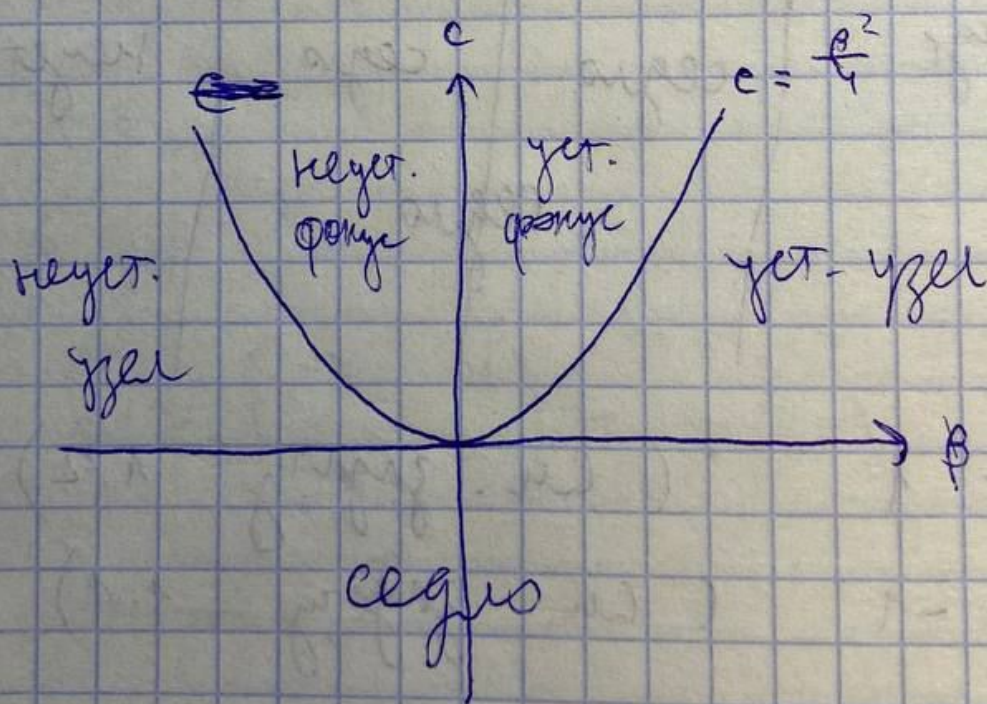 c
c = β²/4
неуст.
фокус
уст.
фокус
неуст.
узел
уст. узел
β
седло